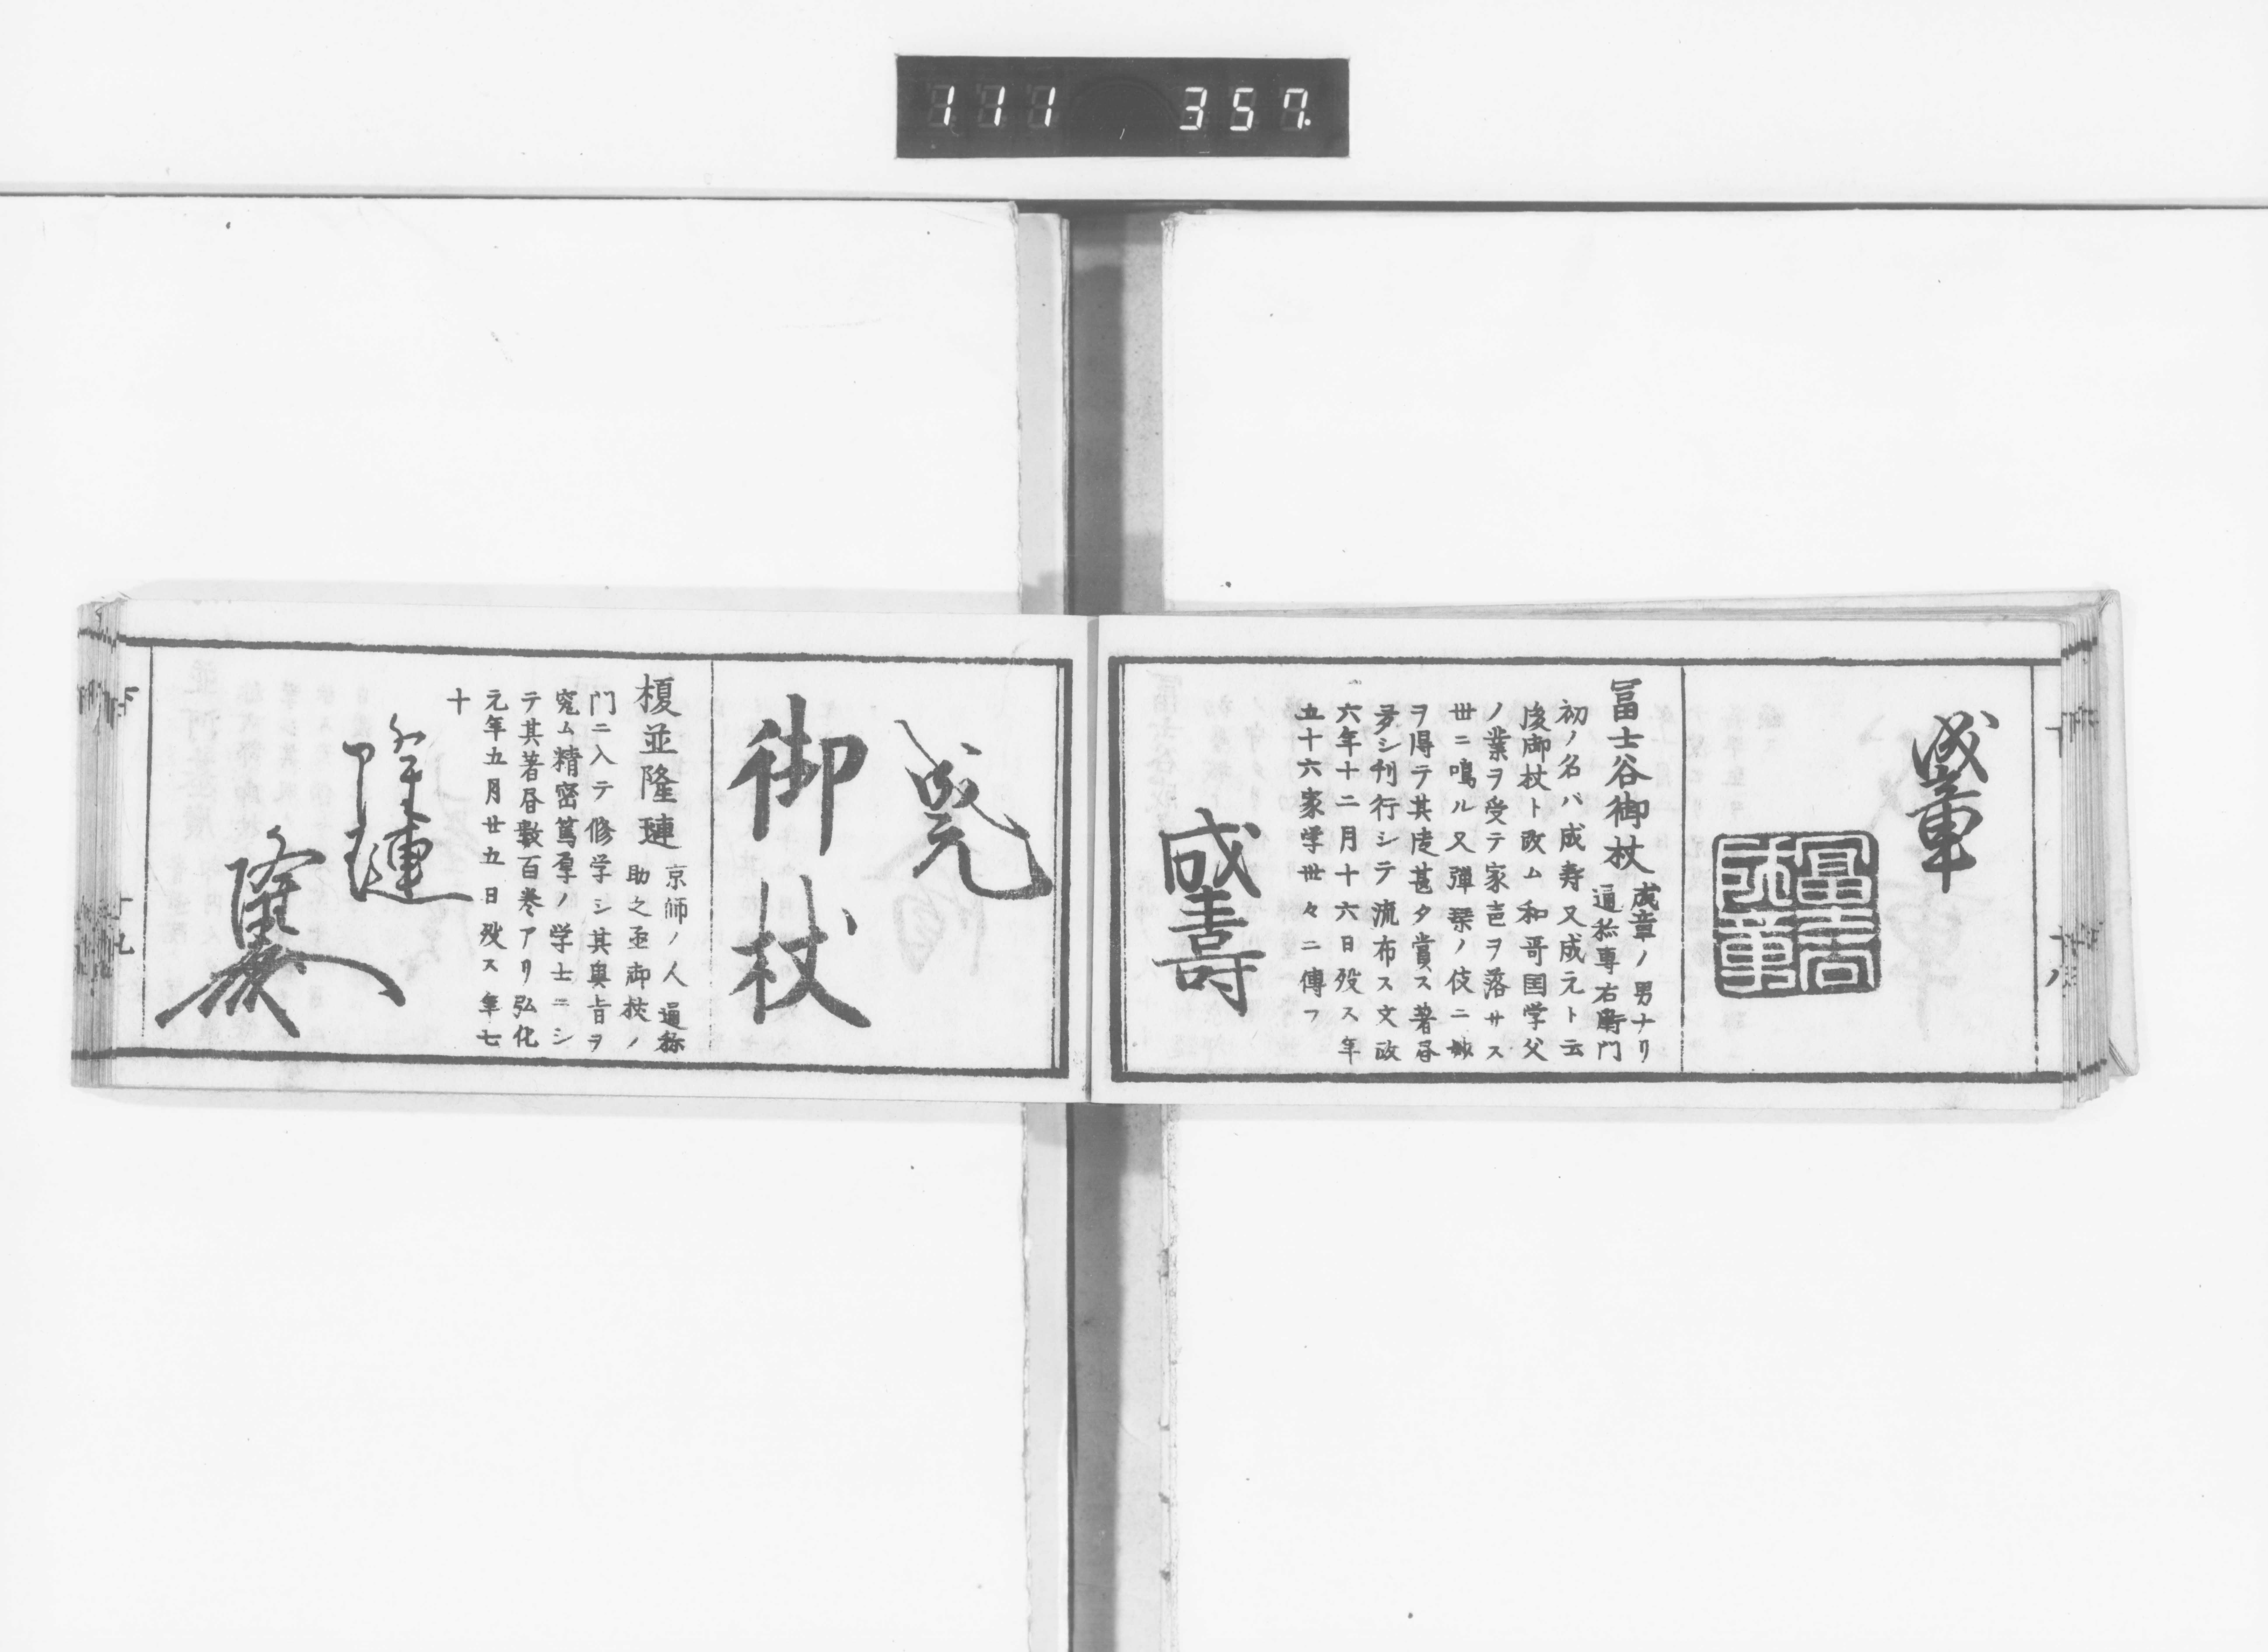 111 357.
成章
富士谷成章
冨士谷御杖 成章ノ男ナリ
通称専右衛門
初ノ名ハ成寿又成元ト云
後御杖ト改ム和哥国学父
ノ業ヲ受テ家声ヲ落サス
世ニ鳴ル又弾琹ノ伎ニ妙
ヲ得テ其度甚タ賞ス著書
多シ刊行シテ流布ス文政
六年十二月十六日歿ス年
五十六家学世々ニ傳フ
成壽
成元
御杖
榎並隆璉 京師ノ人通称
助之丞御杖ノ
門ニ入テ修学シ其奥旨ヲ
究ム精密篤厚ノ学士ニシ
テ其著書數百巻アリ弘化
元年五月廿五日歿ス年七
十
隆璉
下 十九
下 十八